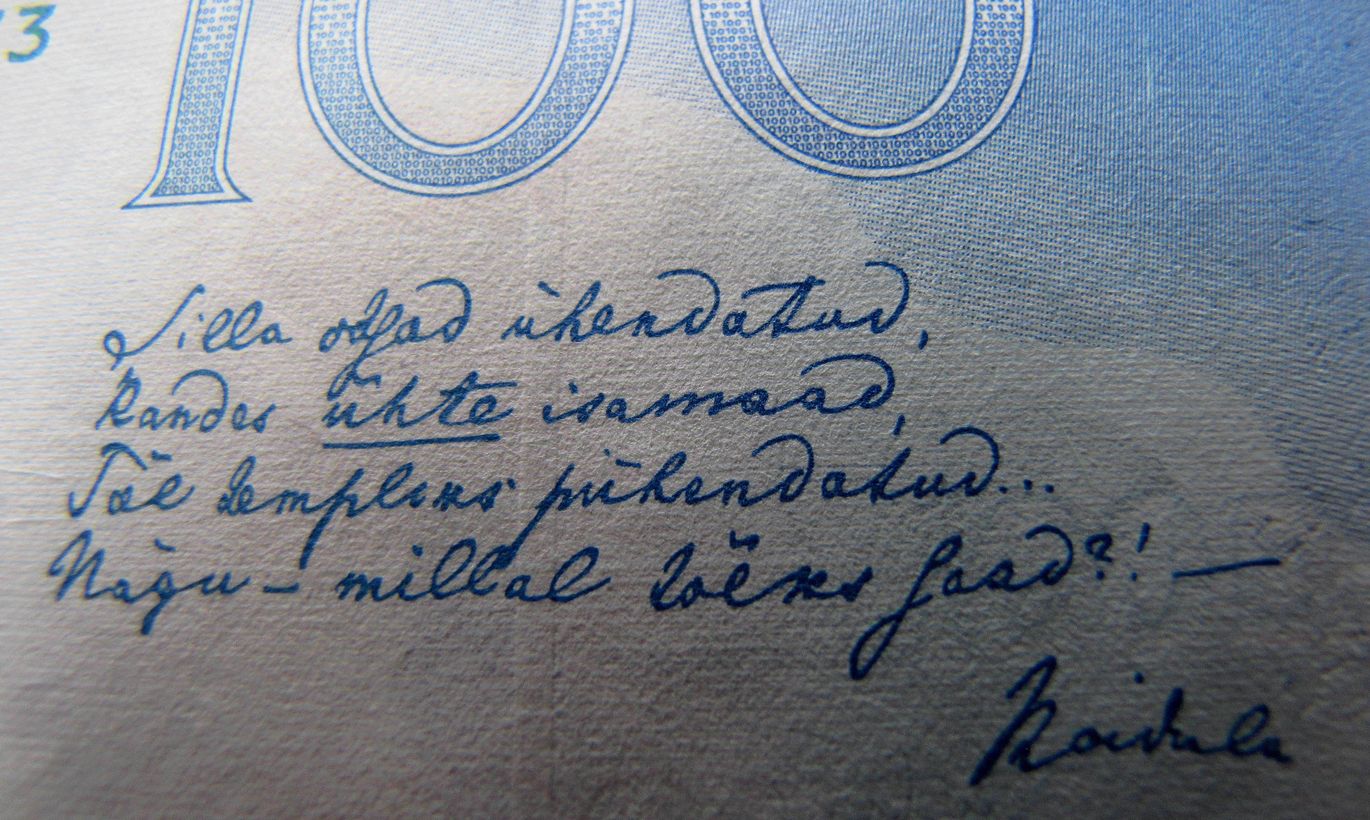 3
100
Silla otsad ühendatud,
Kandes ühte isamaad,
Töe templiks pühendatud...
Nägu – millal tõeks saad?! —
Koidula